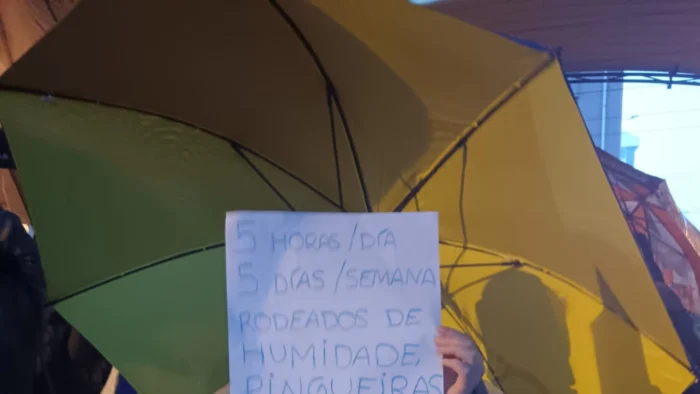 5 HORAS/DIA
5 DIAS/SEMANA
RODEADOS DE
HUMIDADE,
PINGUEIRAS